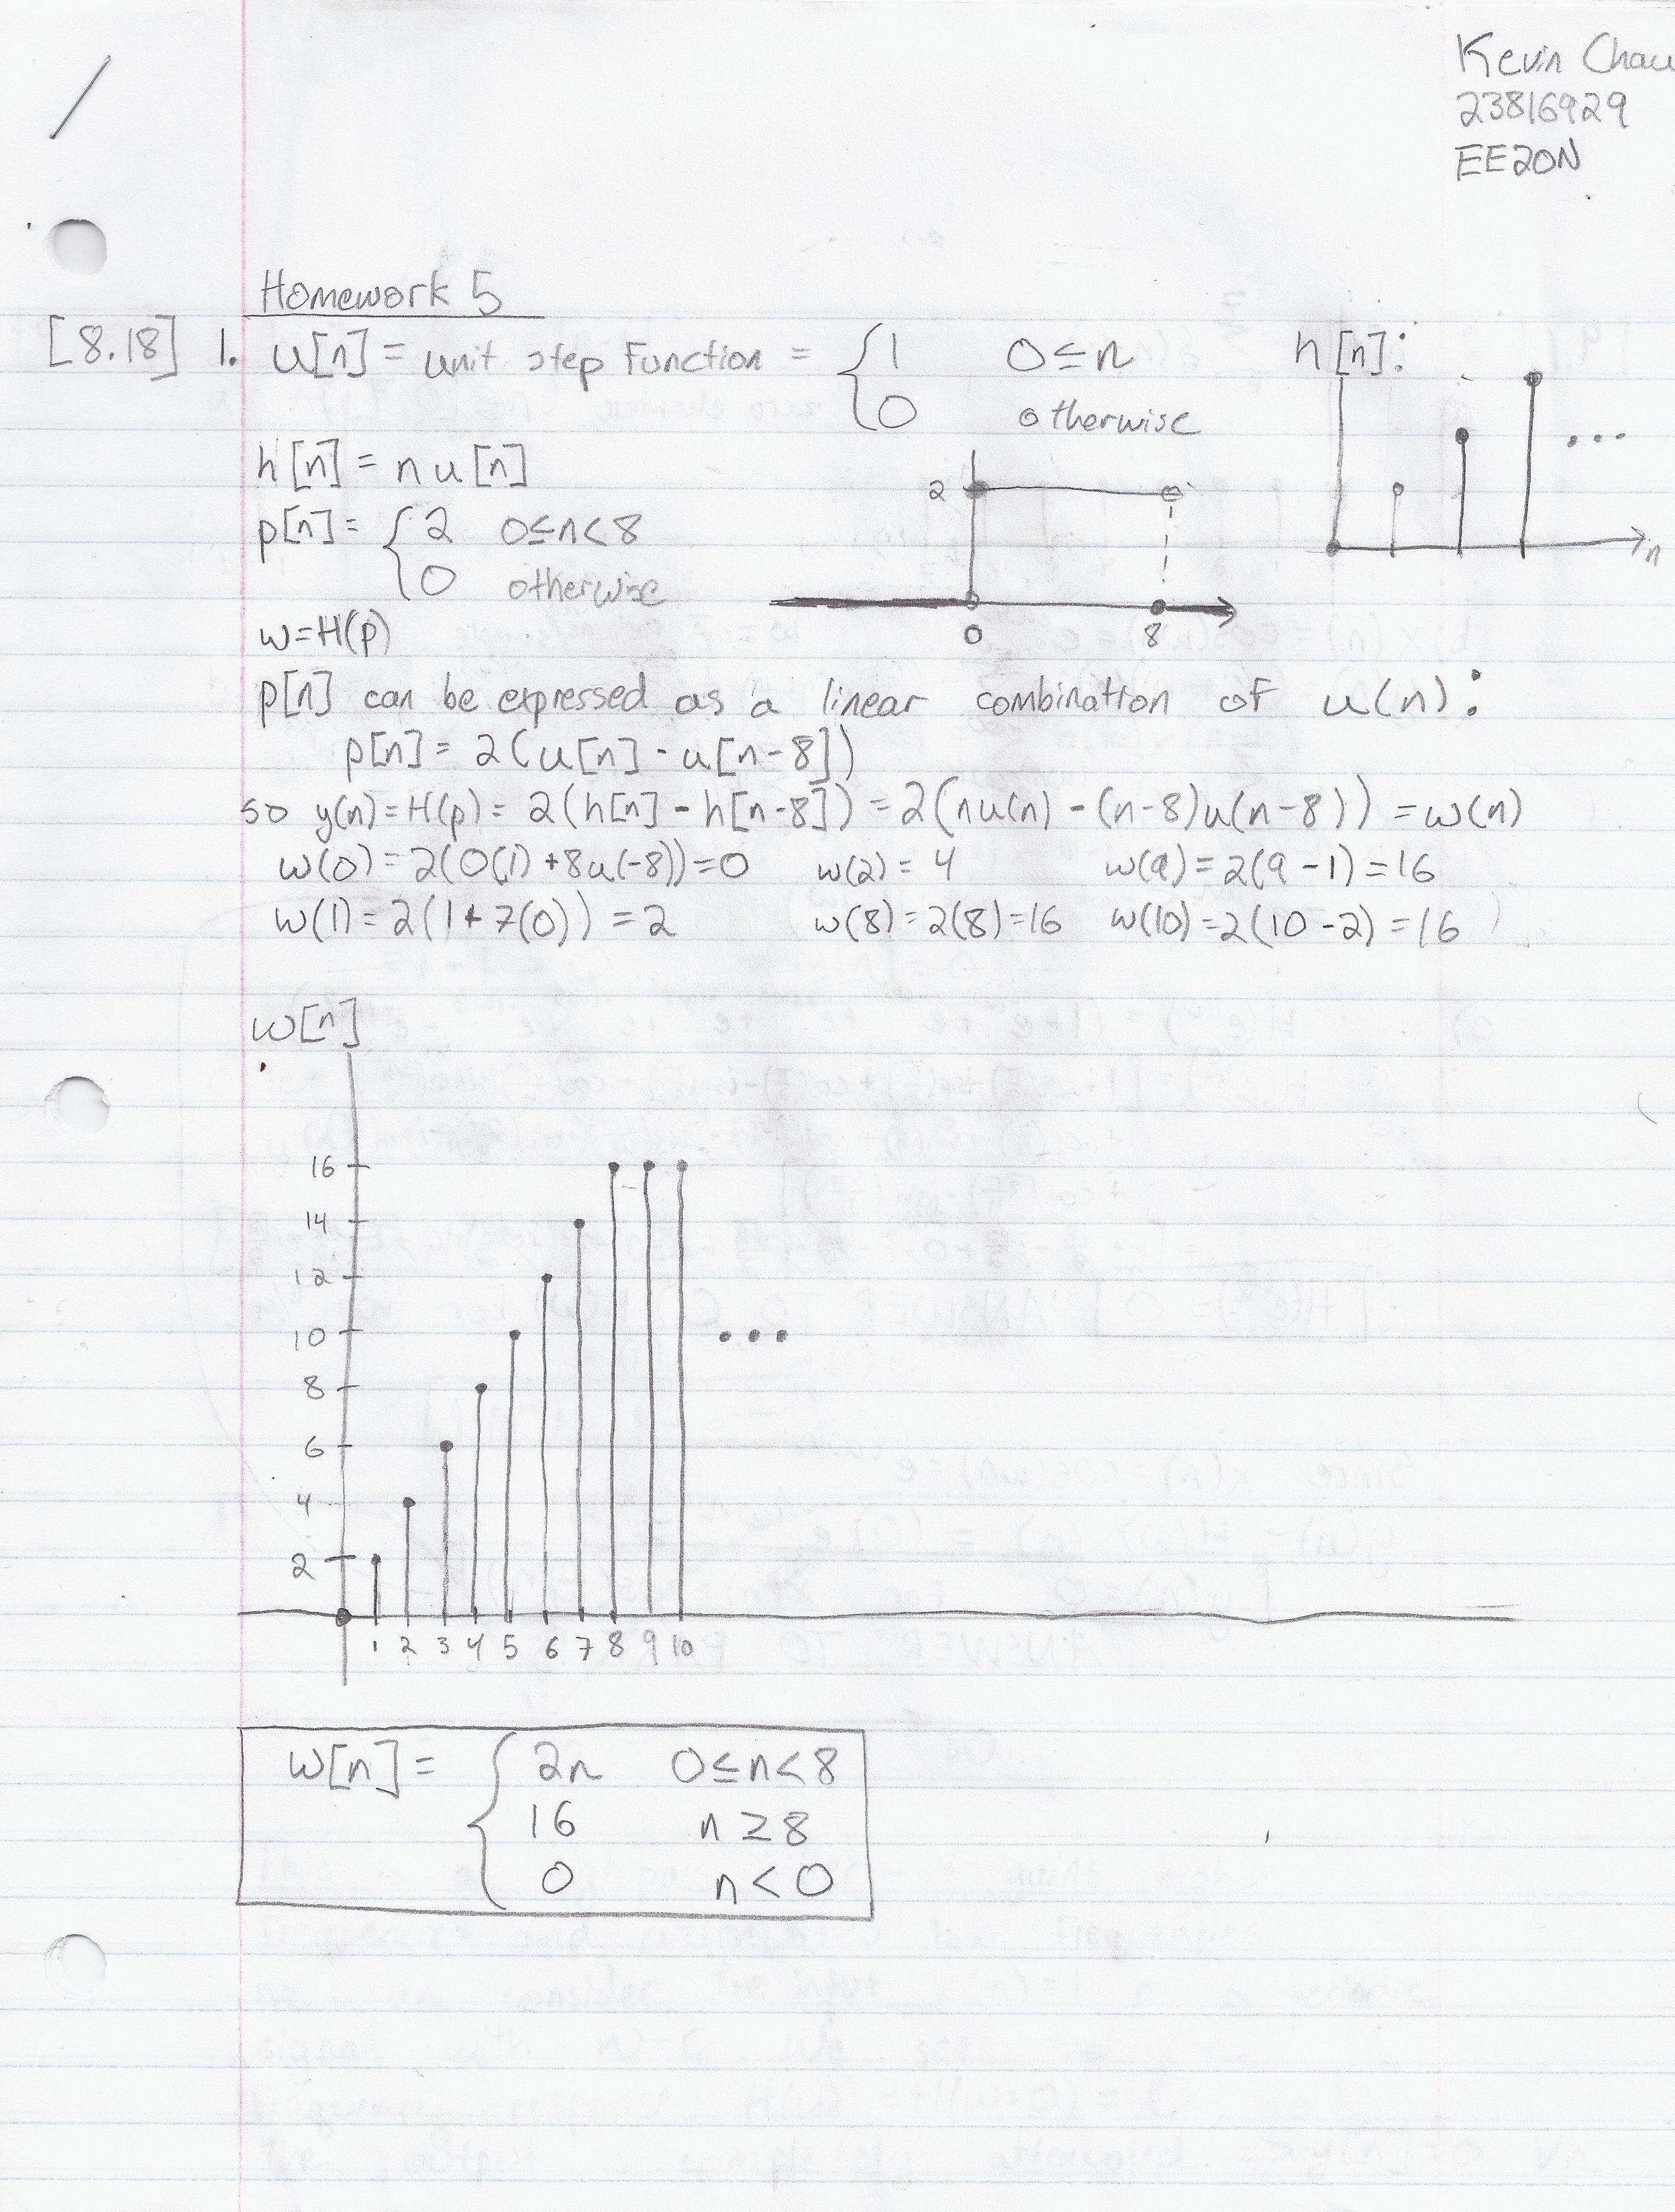 Kevin Chau
23816929
EE20N
Homework 5
[8.18] 1. u[n] = unit step function = { 1 0≤n
0 otherwise
h[n]:
n
h[n] = n u[n]
p[n] = { 2 0≤n<8
0 otherwise
2
0 8
w=H(p)
p[n] can be expressed as a linear combination of u(n):
p[n] = 2(u[n] - u[n-8])
so y(n) = H(p) = 2(h[n] - h[n-8]) = 2(nu(n) - (n-8)u(n-8)) = w(n)
w(0) = 2(0(1) +8u(-8)) = 0 w(2) = 4 w(9) = 2(9-1) = 16
w(1) = 2(1+7(0)) = 2 w(8) = 2(8) = 16 w(10) = 2(10-2) = 16
w[n]
16
14
12
10 ...
8
6
4
2
1 2 3 4 5 6 7 8 9 10
w[n] = { 2n 0≤n<8
16 n≥8
0 n<0